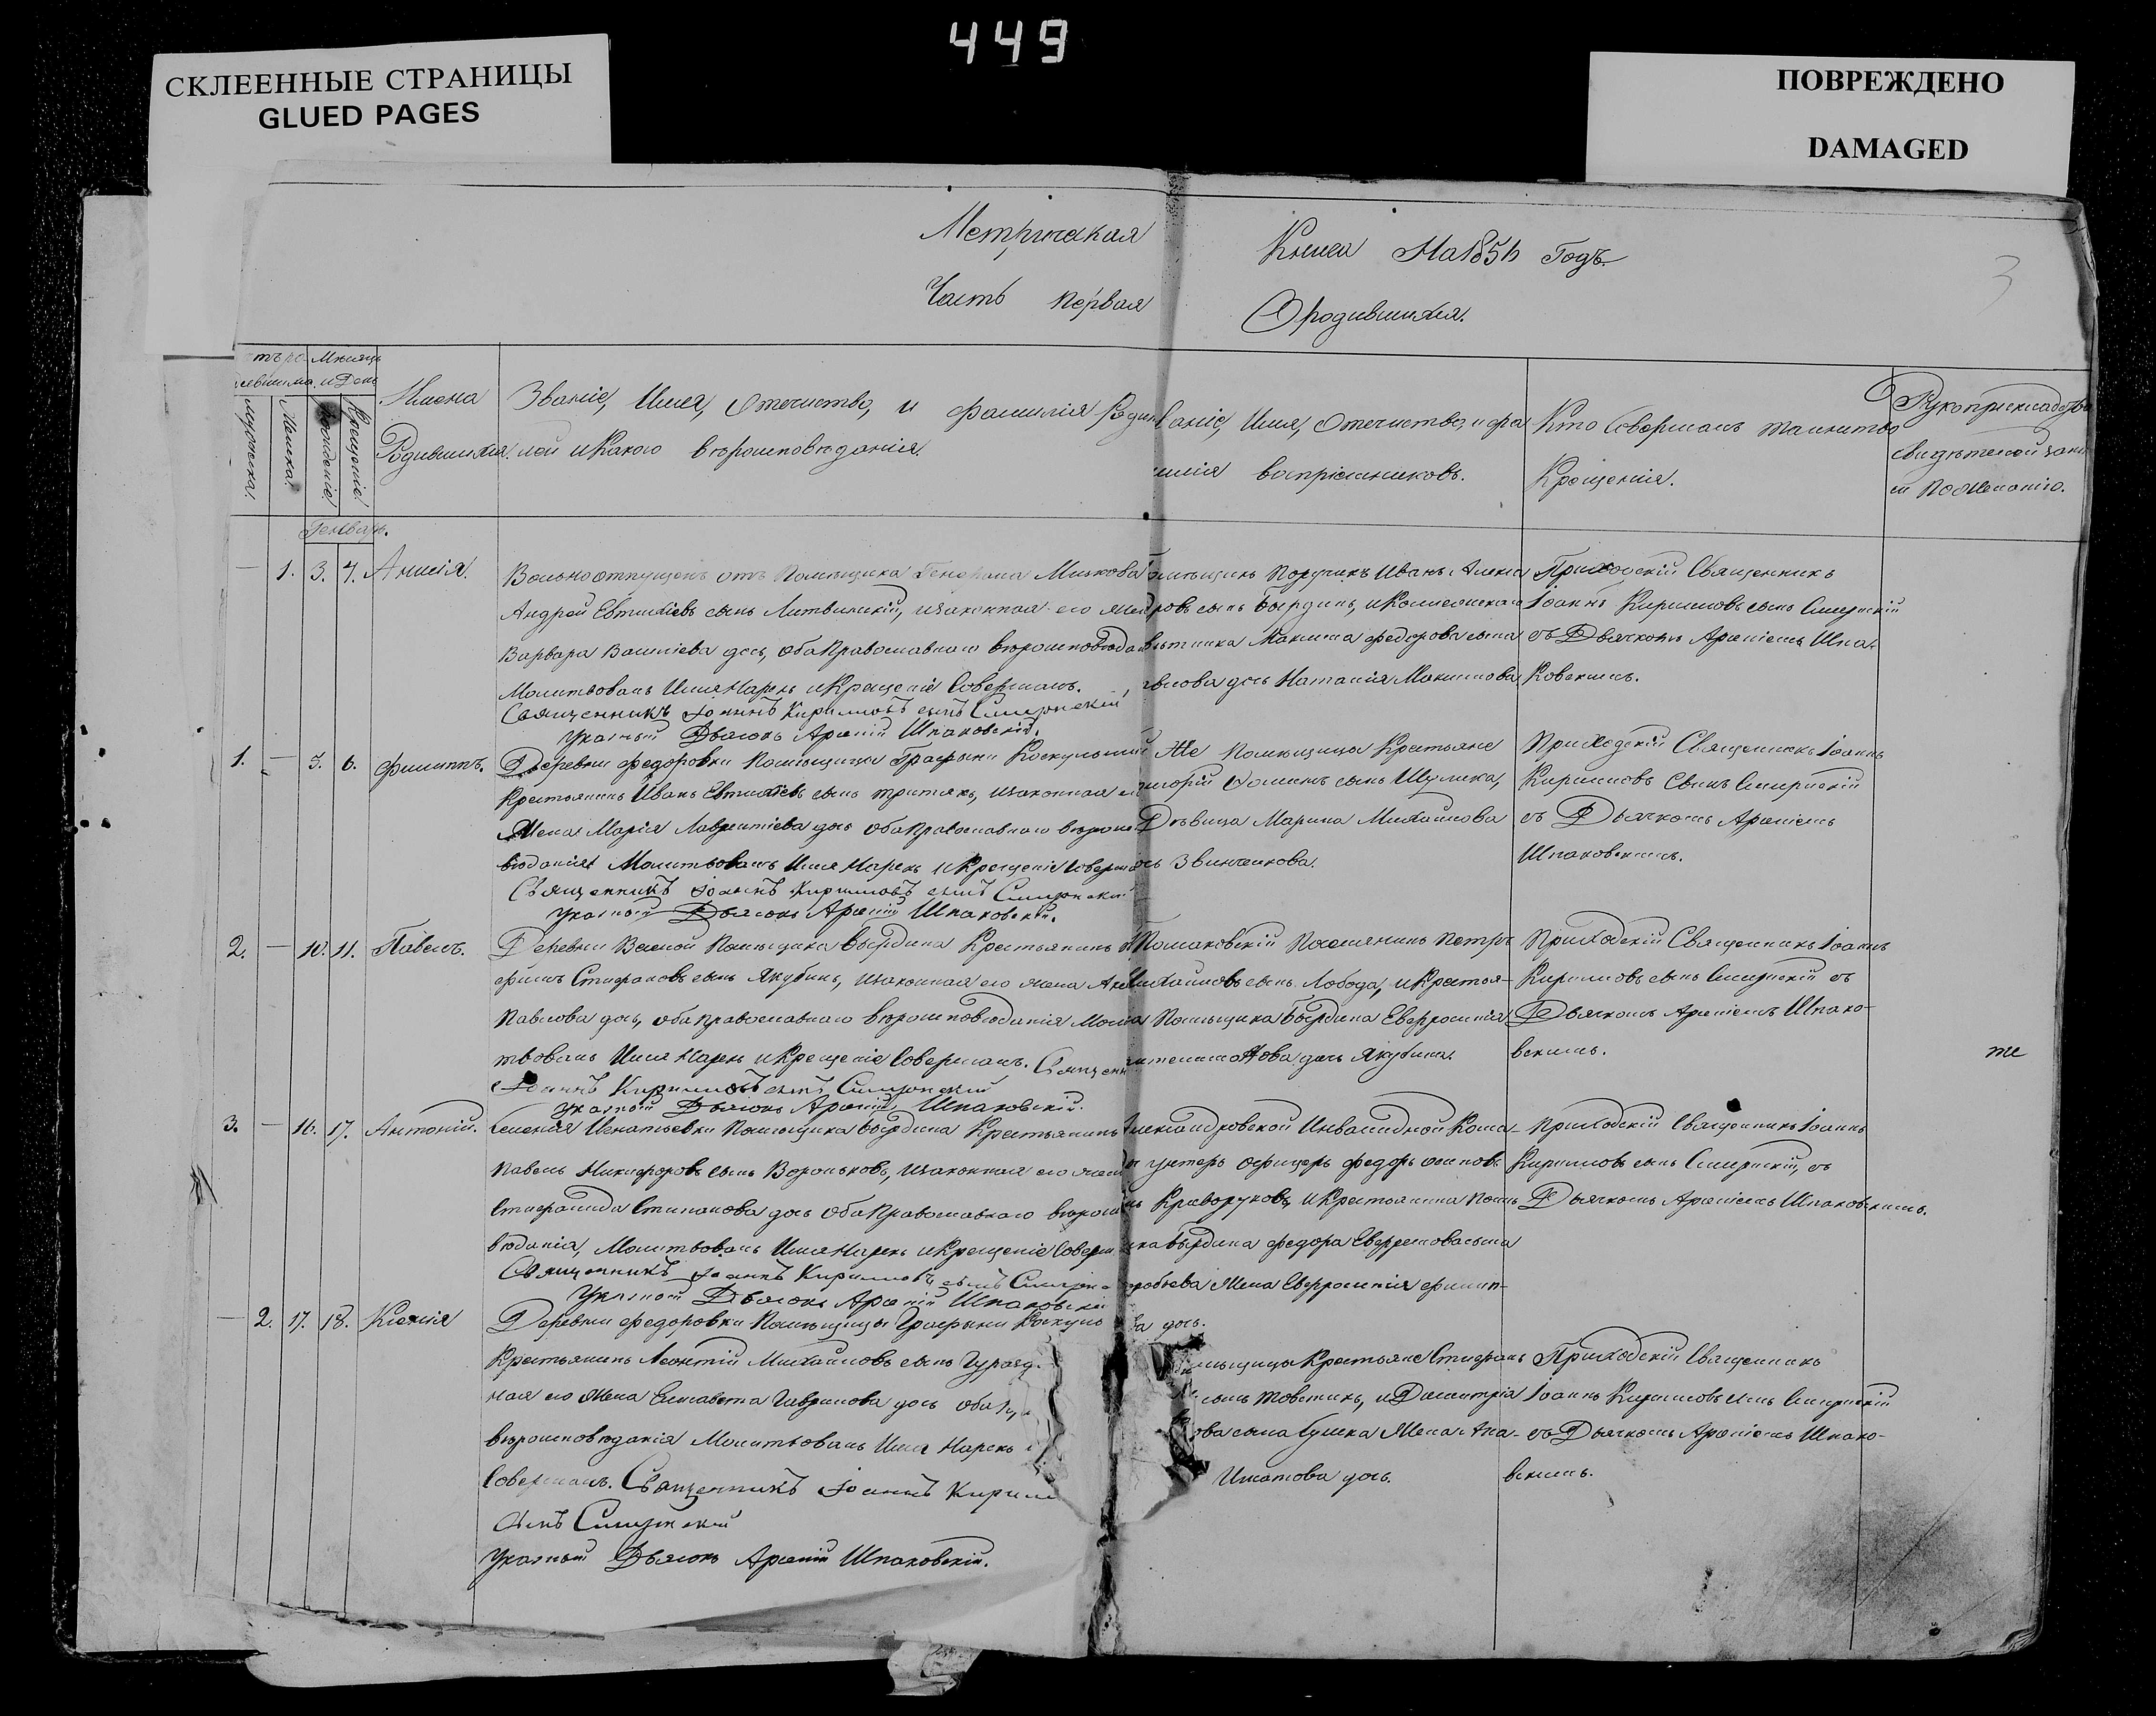 449
СКЛЕЕННЫЕ СТРАНИЦЫ
GLUED PAGES
ПОВРЕЖДЕНО
DAMAGED
Метрическая Книга На 185 Годъ.
3
Часть первая О родившихся.
Мѣсяцъ
и День
Мужеска.
Женска.
Рожденіе.
Крещеніе.
Имена
Родившихся.
Званіе, Имя, Отечество, и фамилія Роди
лей и Какого вѣроисповѣданія.
Званіе, Имя, Отечество, и фа
милія воспріемниковъ.
Кто Совершалъ таинство
Крещенія.
Рукоприкладство
свидѣтелей запи
си по Желанію.
Генварь.
— 1. 3. 4. Анисія.
Вольноотпущенъ отъ Помѣщика Генерала
Андрей Евтихіевъ сынъ Литвинскій, изаконная его жена
Варвара Васильева дочь, оба Православнаго вѣроисповѣдан
Молитвовалъ Имя Нарекъ и Крещеніе Совершалъ.
Священникъ Іоаннъ Кирилловъ сынъ
Указный Дьячокъ Арсеній Шпаковскій.
Помѣщикъ Поручикъ Иванъ
ровъ сынъ Бырдинъ,
Максима федорова сына
дочь Наталія Максимова
Приходскій Священникъ
Іоаннъ Кирилловъ сынъ
съ Дьячкомъ Арсеніемъ Шпа-
ковскимъ.
1. — 3. 6. Филиппъ.
Деревни федоровки Помѣщицы Графыни
Крестьянинъ Иванъ Евтихіевъ сынъ Третякъ, изаконная его
Жена Марія Лаврентіева дочь оба Православнаго вѣроиспо
вѣданія Молитвовалъ Имя Нарекъ и Крещеніе Совершалъ
Священникъ Іоаннъ Кирилловъ сынъ
Указный Дьячокъ Арсеній Шпаковскій.
Же Помѣщицы Крестьяне
сынъ Шулика,
Дѣвица Марина Михайлова
дочь Звинчикова.
Приходскій Священникъ Іоаннъ
Кирилловъ Сынъ
съ Дьячкомъ Арсеніемъ
Шпаковскимъ.
2. — 10. 11. Павелъ.
Деревни Помѣщика Бырдина Крестьянинъ
Стефановъ сынъ Якубинъ, изаконная его жена
Павлова дочь, оба православнаго вѣроисповѣданія Моли
твовалъ Имя Нарекъ и Крещеніе Совершалъ. Священ
Іоаннъ Кирилловъ сынъ
Указный Дьячокъ Арсеній Шпаковскій.
Поселянинъ Петръ
Михайловъ сынъ Лобода, и Крестья-
на Помѣщика Бырдина Евфросинія
дочь Якубина.
Приходскій Священникъ Іоаннъ
Кирилловъ сынъ съ
Дьячкомъ Арсеніемъ Шпако-
вскимъ.
те
3. — 16. 17. Антоній.
Селенія Игнатьевки Помѣщика Бырдина Крестьянинъ
Павелъ Никифоровъ сынъ Вороньковъ, изаконная его жена
Стефанида Степанова дочь оба Православнаго вѣроиспо
вѣданія, Молитвовалъ Имя Нарекъ и Крещеніе Соверш
Священникъ Іоаннъ Кирилловъ сынъ
Указный Дьячокъ Арсеній Шпаковскій
Александровской Инвалидной Кома-
ды унтеръ офицеръ федоръ Осиповъ
Криворуковъ, и Крестьянина Помѣ
щика Бырдина федора Евфремова сына
Жена Евфросинія филип-
ва дочь.
Приходскій Священникъ Іоаннъ
Кирилловъ сынъ съ
Дьячкомъ Арсеніемъ Шпаковскимъ.
— 2. 17. 18. Ксенія
Деревни федоровки Помѣщицы Графыни
Крестьянинъ Леонтій Михайловъ сынъ
ная его Жена Елисавета Гаврилова дочь оба
вѣроисповѣданія Молитвовалъ Имя Нарекъ
Совершалъ. Священникъ Іоаннъ Кирил
сынъ
Указный Дьячокъ Арсеній Шпаковскій.
Помѣщицы Крестьяне Стефанъ
сынъ Товстикъ, и Димитрія
ова сына Жена
Игнатова дочь.
Приходскій Священникъ
Іоаннъ Кирилловъ сынъ
съ Дьячкомъ Арсеніемъ Шпако-
вскимъ.